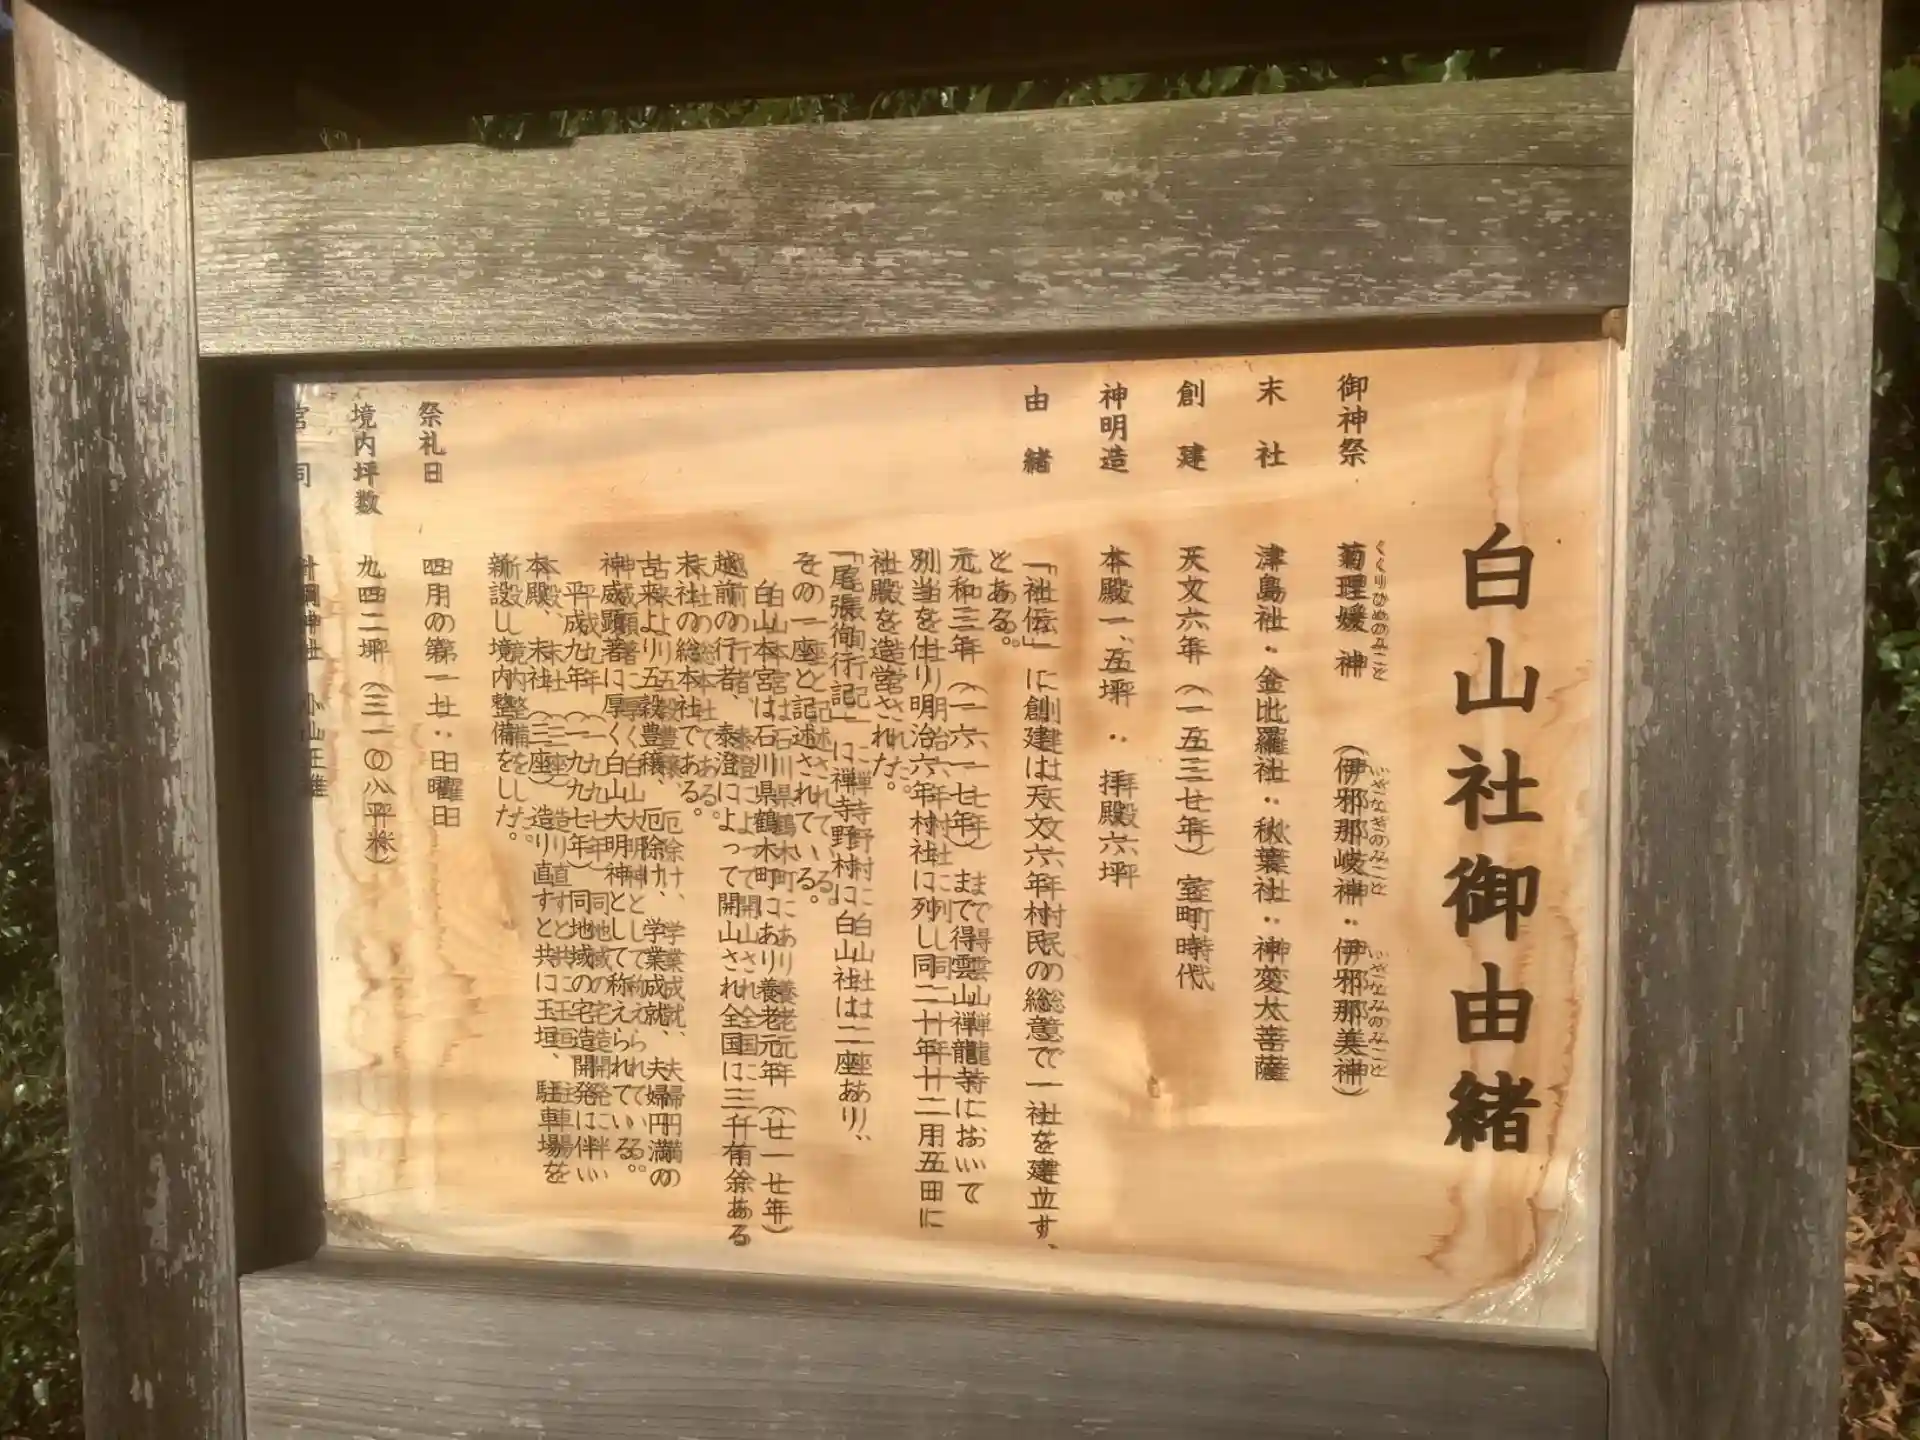 白山社御由緒
御神祭 菊理媛神 (伊邪那岐神・伊邪那美神)
くくりひめのみこと いざなぎのみこと いざなみのみこと
末社 津島社・金比羅社・秋葉社・神変大菩薩
創建 天文六年(一五三七年)室町時代
神明造 本殿一、五坪・拝殿六坪
由緒 「社伝」に創建は天文六年村民の総意で一社を建立す、
とある。
元和三年(一六一七年)まで得雲山禅龍寺において
別当を仕り明治六年村社に列し同二十年廿二月五日に
社殿を造営された。
「尾張徇行記」に禅寺野村に白山社は二座あり、
その一座と記述されている。
白山本宮は石川県鶴木町にあり養老元年(七一七年)
越前の行者、泰澄によって開山され全国に三千有余ある
末社の総本社である。
古来より五穀豊穣、厄除け、学業成就、夫婦円満の
神威顕著に厚く白山大明神として称えられている。
平成九年(一九九七年)同地域の宅造開発に伴い
本殿、末社(三座)造り直すと共に玉垣、駐車場を
新設し境内整備をした。
祭礼日 四月の第一土・日曜日
境内坪数 九四二坪(三一〇八平米)
宮司 針綱神社 小山正雄